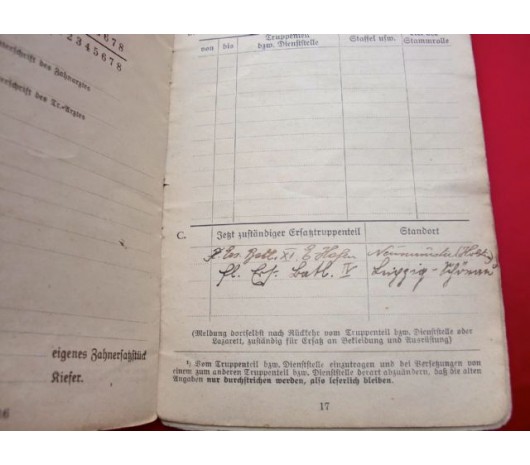 5678
12345678
Unterschrift des Zahnarztes
Unterschrift des Tr.-Arztes
eigenes Zahnersatzstück
Kiefer.
16
von bis Truppenteil bzw. Dienststelle Staffel usw. Stammrolle
C. Jetzt zuständiger Ersatztruppenteil Standort
Batl. XI Neumünster
Fl. Ers. Batl. IV Leipzig-Schönau
(Meldung dortselbst nach Rückkehr vom Truppenteil bzw. Dienststelle oder
Lazarett, zuständig für Ersatz an Bekleidung und Ausrüstung)
¹) Vom Truppenteil bzw. Dienststelle einzutragen und bei Versetzungen von
einem zum anderen Truppenteil bzw. Dienststelle derart abzuändern, daß die alten
Angaben nur durchstrichen werden, also leserlich bleiben.
17